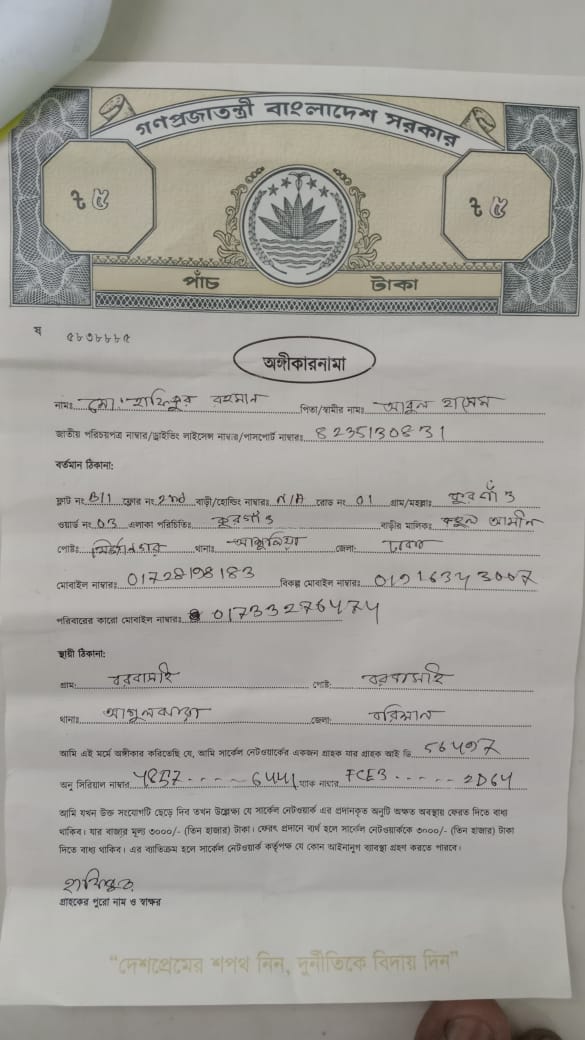 গণপ্রজাতন্ত্রী বাংলাদেশ সরকার
৳ ৫
৳ ৫
পাঁচ টাকা
ষ ৫৮৩৮৮৮৫
অঙ্গীকারনামা
নামঃ মো: হাফিজুর রহমান পিতা/স্বামীর নামঃ আবুল হাসেম
জাতীয় পরিচয়পত্র নাম্বার/ড্রাইভিং লাইসেন্স নাম্বার/পাসপোর্ট নাম্বারঃ 8235130831
বর্তমান ঠিকানা:
ফ্লাট নং B/1 ফ্লোর নং 2nd বাড়ী/হোল্ডিং নাম্বারঃ N/A রোড নং 01 গ্রাম/মহল্লাঃ কুরগাঁও
ওয়ার্ড নং 03 এলাকা পরিচিতিঃ কুরগাঁও বাড়ীর মালিকঃ আমীন
পোষ্টঃ থানাঃ আশুলিয়া জেলা: ঢাকা
মোবাইল নাম্বারঃ 01728198183 বিকল্প মোবাইল নাম্বারঃ
পরিবারের কারো মোবাইল নাম্বারঃ 01733276474
স্থায়ী ঠিকানা:
গ্রাম: পোষ্ট:
থানাঃ জেলা: বরিশাল
আমি এই মর্মে অঙ্গীকার করিতেছি যে, আমি সার্কেল নেটওয়ার্কের একজন গ্রাহক যার গ্রাহক আই ডি
অনু সিরিয়াল নাম্বার ম্যাক নাম্বার FCE3 - - - - - 2D64
আমি যখন উক্ত সংযোগটি ছেড়ে দিব তখন উল্লেক্ষ্য যে সার্কেল নেটওয়ার্ক এর প্রদানকৃত অনুটি অক্ষত অবস্থায় ফেরত দিতে বাধ্য
থাকিব। যার বাজার মূল্য ৩০০০/- (তিন হাজার) টাকা। ফেরৎ প্রদানে ব্যর্থ হলে সার্কেল নেটওয়ার্ককে ৩০০০/- (তিন হাজার) টাকা
দিতে বাধ্য থাকিব। এর ব্যতিক্রম হলে সার্কেল নেটওয়ার্ক কর্তৃপক্ষ যে কোন আইনানুগ ব্যাবস্থা গ্রহণ করতে পারবে।
গ্রাহকের পুরো নাম ও স্বাক্ষর
“দেশপ্রেমের শপথ নিন, দুর্নীতিকে বিদায় দিন”